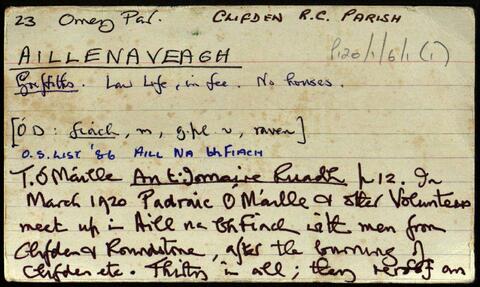 23 Omey Par. CLIFDEN R.C. PARISH
AILLENAVEAGH P120/1/6/1 (1)
Griffiths. Law Life, in fee. No houses.
[Ó D: fiach, m, g.pl v, raven]
O.S. LIST '86 AILL NA bhFIACH
T. Ó Máille An t-Iomaire Ruadh p12. In
March 1920 Padraic Ó Máille & other Volunteers
meet up in Aill na bhFiach with men from
Clifden & Roundstone, after the burning of
Clifden etc. Thirty in all; they